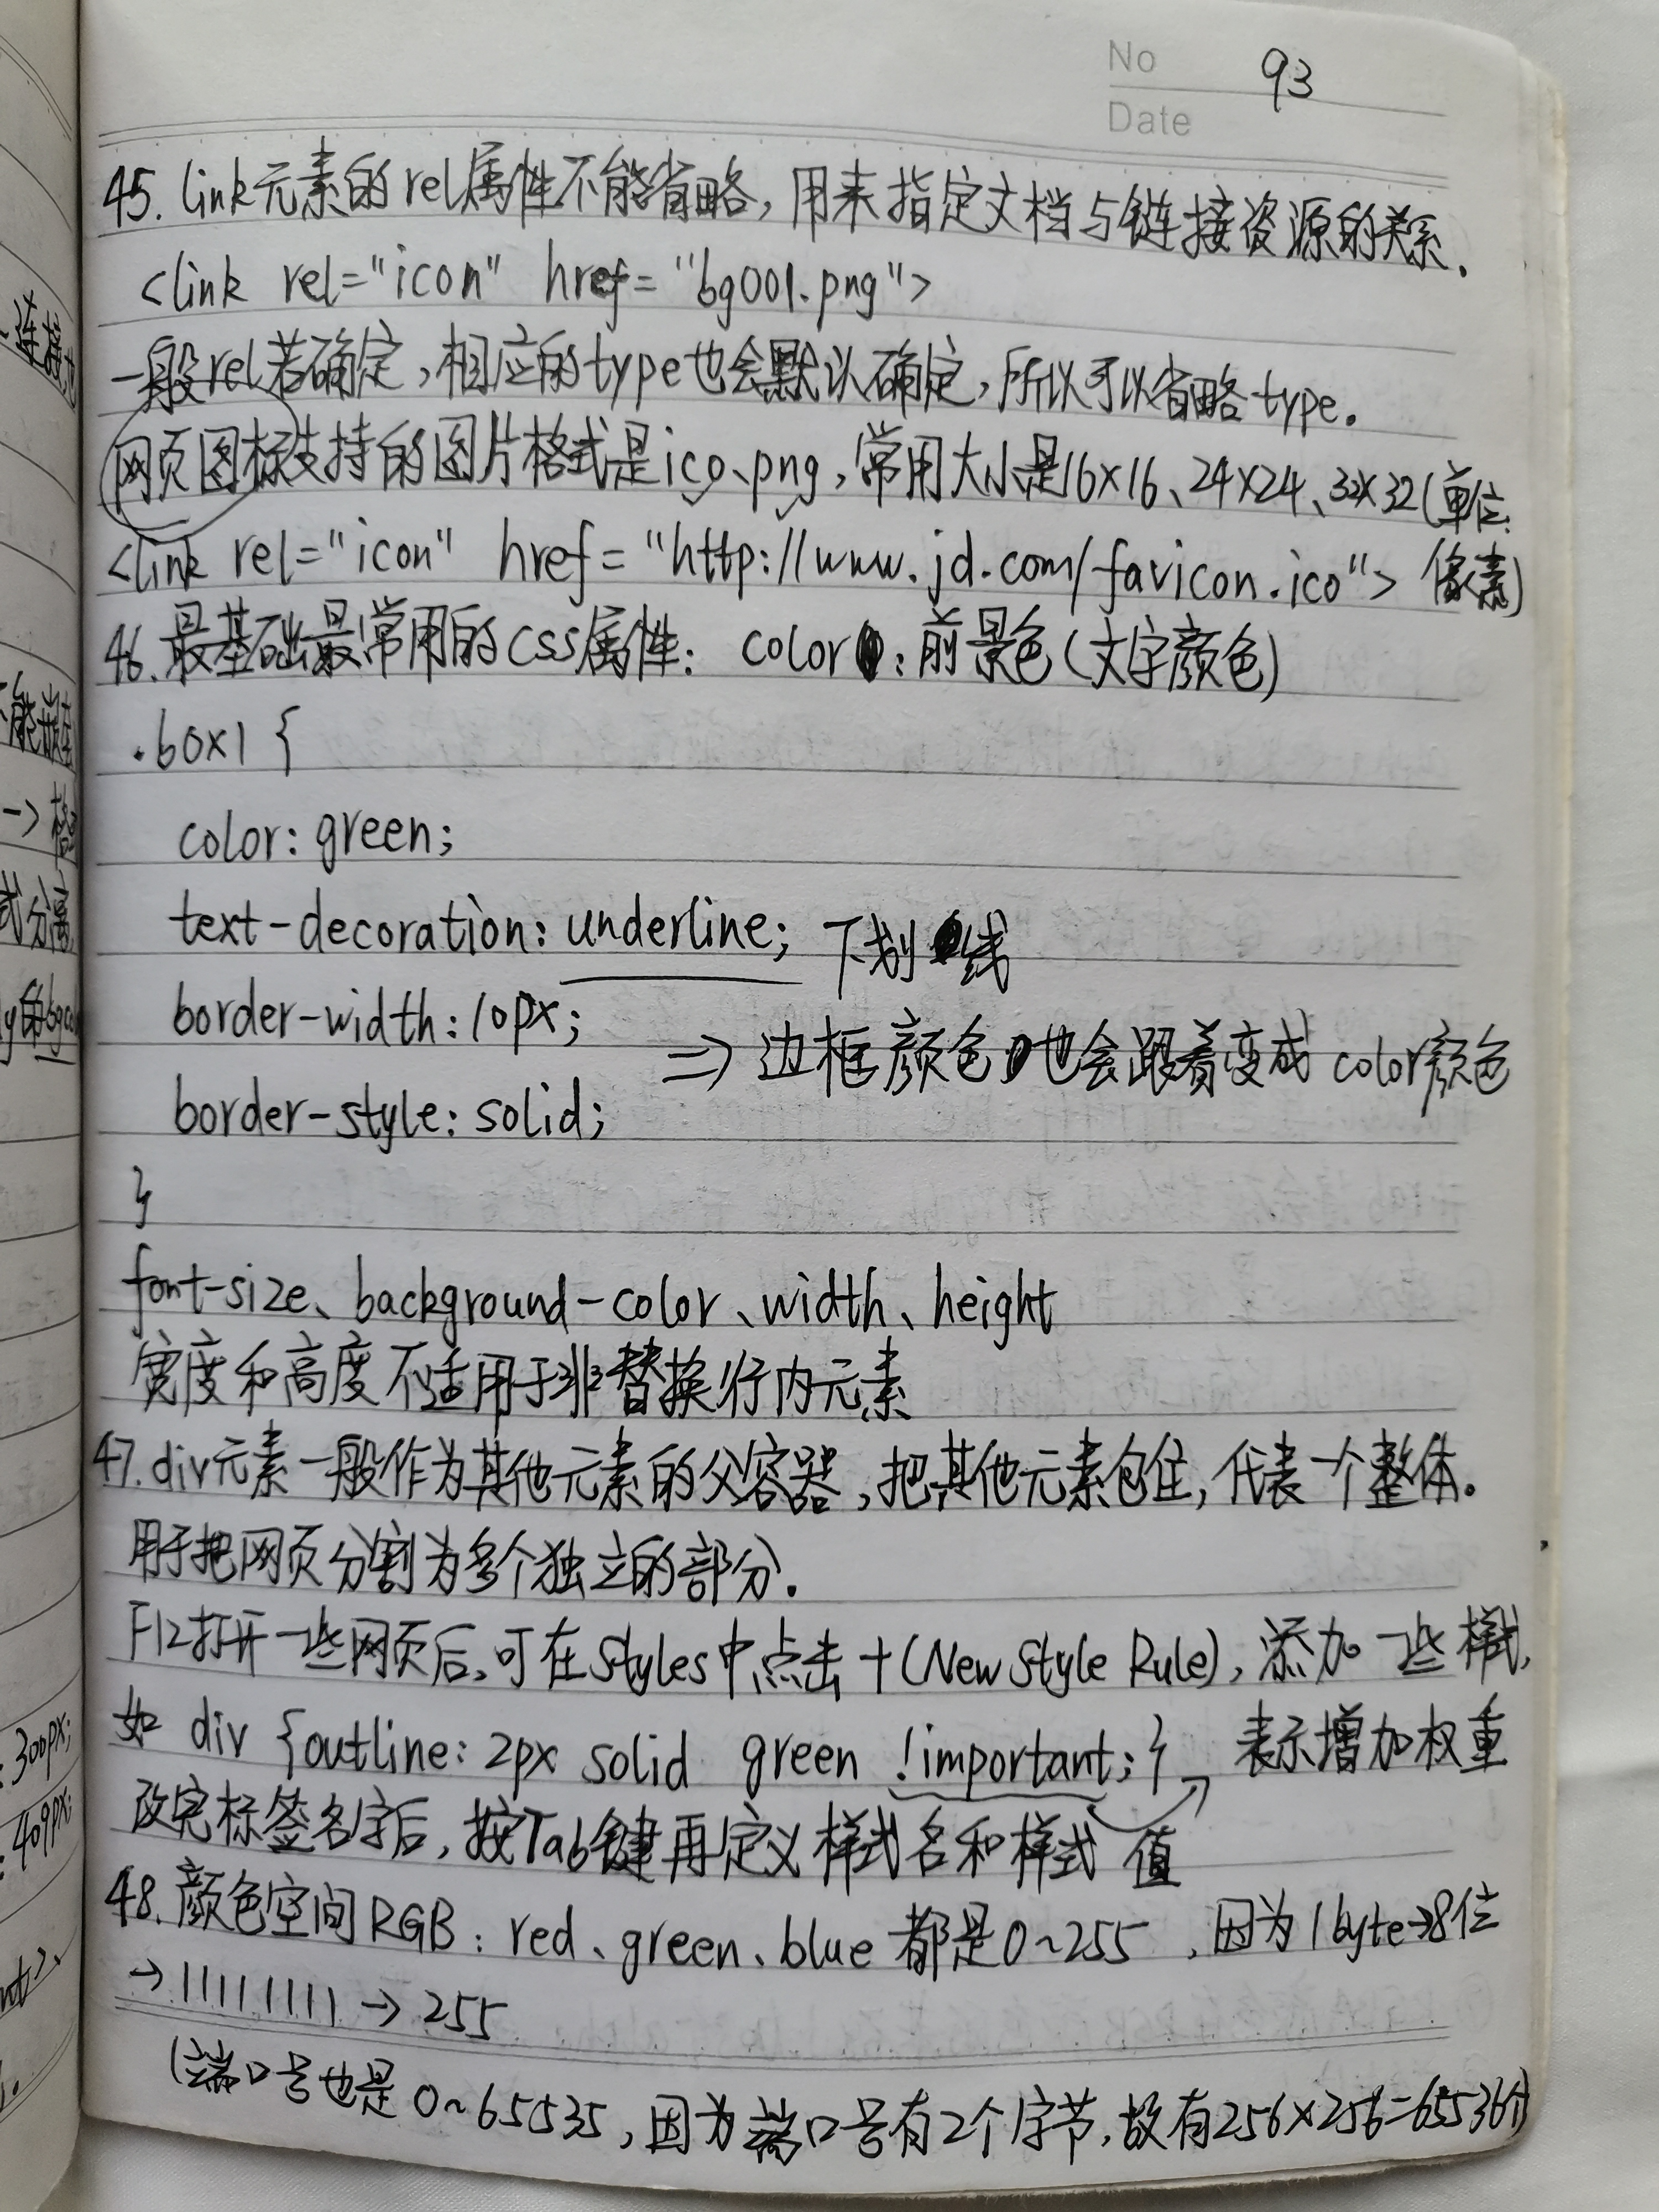 No 93
Date
45. link元素的rel属性不能省略，用来指定文档与链接资源的关系.
<link rel="icon" href="bg001.png">
一般rel若确定，相应的type也会默认确定，所以可以省略type。
网页图标支持的图片格式是ico、png，常用大小是16×16、24×24、32×32(单位:
<link rel="icon" href="http://www.jd.com/favicon.ico"> 像素)
46. 最基础最常用的CSS属性: color: 前景色(文字颜色)
.box1 {
color: green;
text-decoration: underline; 下划线
border-width: 10px;
=> 边框颜色也会跟着变成color颜色
border-style: solid;
}
font-size、background-color、width、height
宽度和高度不适用于非替换行内元素
47. div元素一般作为其他元素的父容器，把其他元素包住，代表一个整体。
用于把网页分割为多个独立的部分.
F12打开一些网页后，可在Styles中点击+(New Style Rule)，添加一些样式,
如 div {outline: 2px solid green !important;} 表示增加权重
改完标签名字后，按Tab键再定义样式名和样式值
48. 颜色空间RGB: red、green、blue都是0~255，因为1byte→8位
→11111111→255
(端口号也是0~65535，因为端口号有2个字节，故有256×256=65536个)
连接
能嵌
->
式分离
y的bgco
: 300px;
: 409px;